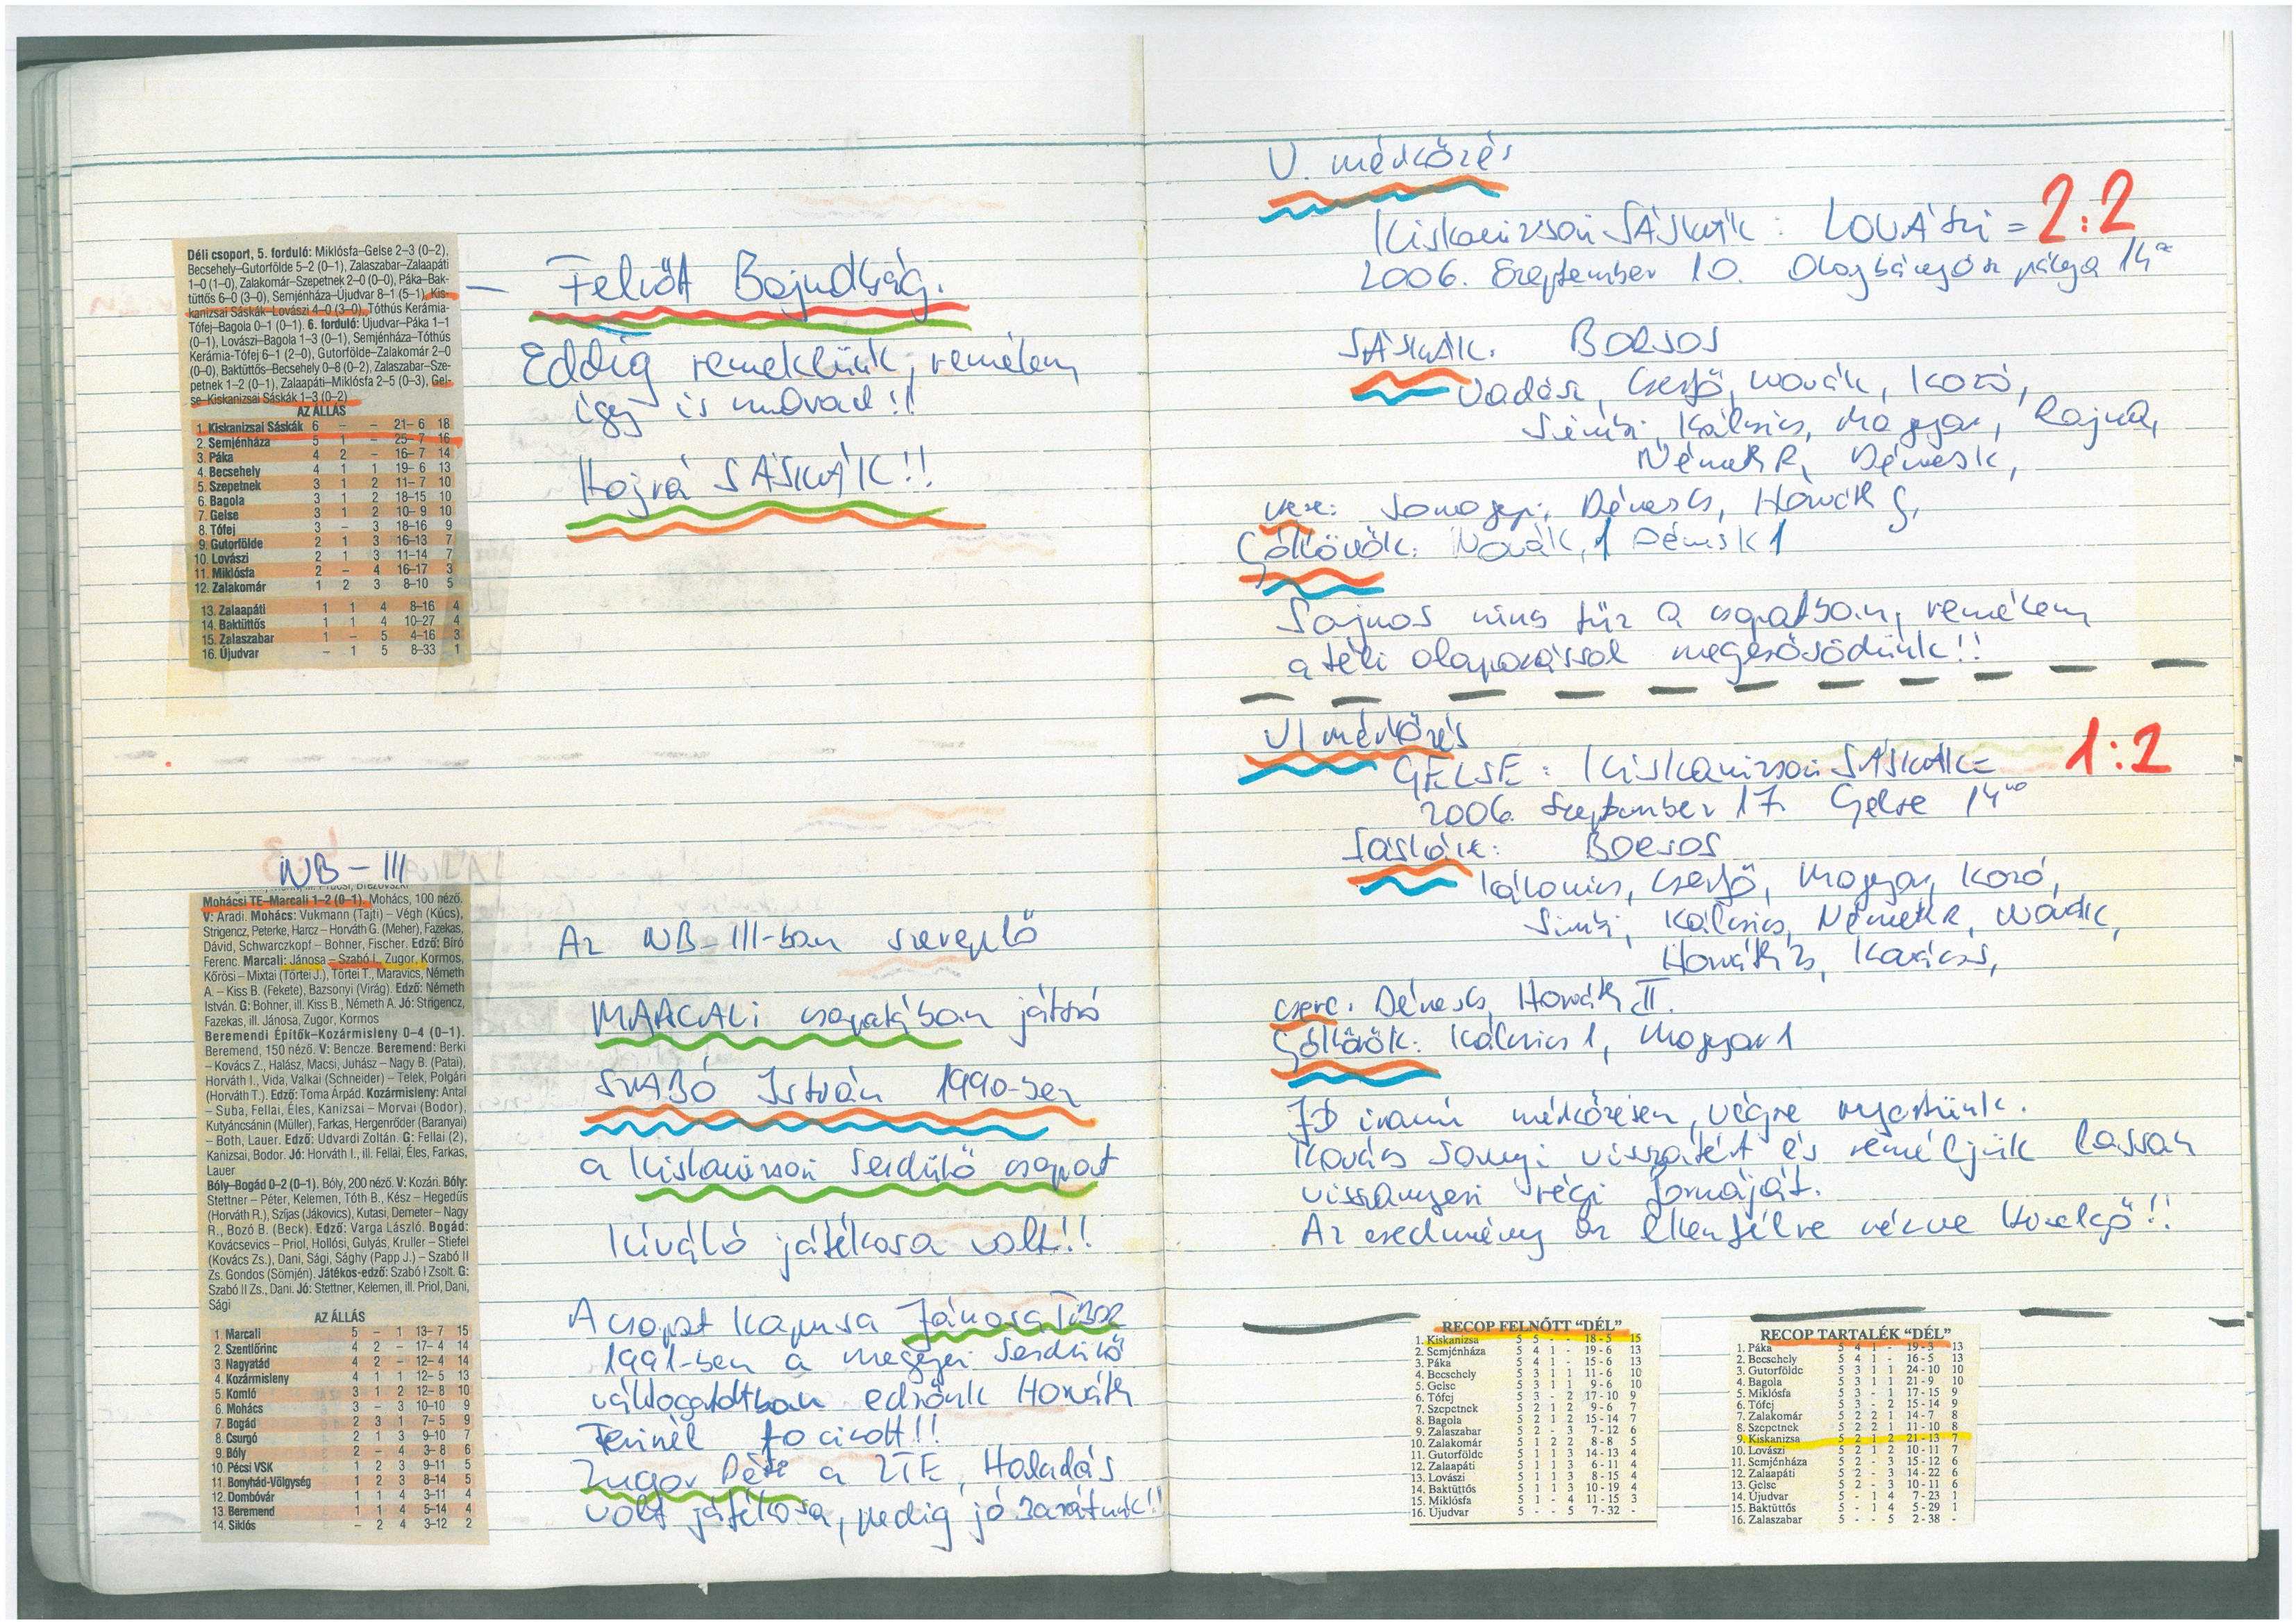 Déli csoport, 5. forduló: Miklósfa–Gelse 2–3 (0–2),
Becsehely–Gutorfölde 5–2 (0–1), Zalaszabar–Zalaapáti
1–0 (1–0), Zalakomár–Szepetnek 2–0 (0–0), Páka–Bak-
tüttős 6–0 (3–0), Semjénháza–Újudvar 8–1 (5–1), Kis-
kanizsai Sáskák–Lovászi 4–0 (3–0), Tóthús Kerámia-
Tófej–Bagola 0–1 (0–1). 6. forduló: Újudvar–Páka 1–1
(0–1), Lovászi–Bagola 1–3 (0–1), Semjénháza–Tóthús
Kerámia-Tófej 6–1 (2–0), Gutorfölde–Zalakomár 2–0
(0–0), Baktüttős–Becsehely 0–8 (0–2), Zalaszabar–Sze-
petnek 1–2 (0–1), Zalaapáti–Miklósfa 2–5 (0–3), Gel-
se–Kiskanizsai Sáskák 1–3 (0–2)
AZ ÁLLÁS
1. Kiskanizsai Sáskák 6 – – 21– 6 18
2. Semjénháza 5 1 – 25– 7 16
3. Páka 4 2 – 16– 7 14
4. Becsehely 4 1 1 19– 6 13
5. Szepetnek 3 1 2 11– 7 10
6. Bagola 3 1 2 18–15 10
7. Gelse 3 1 2 10– 9 10
8. Tófej 3 – 3 18–16 9
9. Gutorfölde 2 1 3 16–13 7
10. Lovászi 2 1 3 11–14 7
11. Miklósfa 2 – 4 16–17 3
12. Zalakomár 1 2 3 8–10 5
13. Zalaapáti 1 1 4 8–16 4
14. Baktüttős 1 1 4 10–27 4
15. Zalaszabar 1 – 5 4–16 3
16. Újudvar – 1 5 8–33 1
– Felnőtt Bajnokság.
Eddig remeklünk, remélem
így is marad!!
Hajrá SÁSKÁK!!
NB – III
Mohácsi TE–Marcali 1–2 (0–1). Mohács, 100 néző.
V: Aradi. Mohács: Vukmann (Tajti) – Végh (Kúcs),
Strigencz, Peterke, Harcz – Horváth G. (Meher), Fazekas,
Dávid, Schwarczkopf – Bohner, Fischer. Edző: Bíró
Ferenc. Marcali: Jánosa – Szabó I., Zugor, Kormos,
Kőrösi – Mixtai (Törtei J.), Törtei T., Maravics, Németh
A. – Kiss B. (Fekete), Bazsonyi (Virág). Edző: Németh
István. G: Bohner, ill. Kiss B., Németh A. Jó: Strigencz,
Fazekas, ill. Jánosa, Zugor, Kormos
Beremendi Építők–Kozármisleny 0–4 (0–1).
Beremend, 150 néző. V: Bencze. Beremend: Berki
– Kovács Z., Halász, Macsi, Juhász – Nagy B. (Patai),
Horváth I., Vida, Valkai (Schneider) – Telek, Polgári
(Horváth T.). Edző: Toma Árpád. Kozármisleny: Antal
– Suba, Fellai, Éles, Kanizsai – Morvai (Bodor),
Kutyáncsánin (Müller), Farkas, Hergenrőder (Baranyai)
– Both, Lauer. Edző: Udvardi Zoltán. G: Fellai (2),
Kanizsai, Bodor. Jó: Horváth I., ill. Fellai, Éles, Farkas,
Lauer
Bóly–Bogád 0–2 (0–1). Bóly, 200 néző. V: Kozári. Bóly:
Stettner – Péter, Kelemen, Tóth B., Kész – Hegedűs
(Horváth R.), Szíjas (Jákovics), Kutasi, Demeter – Nagy
R., Bozó B. (Beck). Edző: Varga László. Bogád:
Kovácsevics – Priol, Hollósi, Gulyás, Kruller – Stiefel
(Kovács Zs.), Dani, Sági, Sághy (Papp J.) – Szabó II
Zs. Gondos (Sömjén). Játékos-edző: Szabó I Zsolt. G:
Szabó II Zs., Dani. Jó: Stettner, Kelemen, ill. Priol, Dani,
Sági
AZ ÁLLÁS
1. Marcali 5 – 1 13– 7 15
2. Szentlőrinc 4 2 – 17– 4 14
3. Nagyatád 4 2 – 12– 4 14
4. Kozármisleny 4 1 1 12– 5 13
5. Komló 3 1 2 12– 8 10
6. Mohács 3 – 3 10–10 9
7. Bogád 2 3 1 7– 5 9
8. Csurgó 2 1 3 9–10 7
9. Bóly 2 – 4 3– 8 6
10. Pécsi VSK 1 2 3 9–11 5
11. Bonyhád-Völgység 1 2 3 8–14 5
12. Dombóvár 1 1 4 3–11 4
13. Beremend 1 1 4 5–14 4
14. Siklós – 2 4 3–12 2
Az NB–III-ban szereplő
MARCALI csapatában játszó
SZABÓ István 1990-ben
a Kiskanizsai Serdülő csapat
Kiváló játékosa volt!!
A csapat kapusa Jánosa Tibor
1991-ben a megyei Serdülő
válogatottban edzőnk Horváth
Ferinél focizott!!
Zugor Péter a ZTE, Haladás
volt játékosa, pedig jó barátunk!!
V. mérkőzés
Kiskanizsai SÁSKÁK : LOVÁSZI = 2:2
2006. Szeptember 10. Olajbányász pálya 14
SÁSKÁK. BORSOS
Vadász, Cserfő, Novák, Kozó,
Simsi, Kálcsics, Magyar, Rajnai,
Németh R, Dénes K,
csere: Somogyi, Dénes G, Horváth G,
Góllövők: Novák, 1 Dénes K 1
Sajnos nincs tűz a csapatban, remélem
a téli alapozással megerősödünk!!
VI mérkőzés
GELSE : Kiskanizsai SÁSKÁK = 1:2
2006. Szeptember 17. Gelse 14
Sáskák: BORSOS
Kálovics, Cserfő, Magyar, Kozó,
Simsi, Kálcsics, Németh R, Novák,
Horváth Zs, Kovács S,
csere. Dénes G, Horváth II.
Góllövők: Kálcsics 1, Magyar 1
Jó iramú mérkőzésen, végre nyertünk.
Kovács Sanyi visszatért és reméljük lassan
visszanyeri régi formáját.
Az eredmény az ellenfélre nézve hízelgő!!
RECOP FELNŐTT “DÉL”
1. Kiskanizsa 5 5 - - 18 - 5 15
2. Semjénháza 5 4 1 - 19 - 6 13
3. Páka 5 4 1 - 15 - 6 13
4. Becsehely 5 3 1 1 11 - 6 10
5. Gelse 5 3 1 1 9 - 6 10
6. Tófej 5 3 - 2 17 - 10 9
7. Szepetnek 5 2 1 2 9 - 6 7
8. Bagola 5 2 1 2 15 - 14 7
9. Zalaszabar 5 2 - 3 7 - 12 6
10. Zalakomár 5 1 2 2 8 - 8 5
11. Gutorfölde 5 1 1 3 14 - 13 4
12. Zalaapáti 5 1 1 3 6 - 11 4
13. Lovászi 5 1 1 3 8 - 15 4
14. Baktüttős 5 1 1 3 10 - 19 4
15. Miklósfa 5 1 - 4 11 - 15 3
16. Újudvar 5 - - 5 7 - 32 -
RECOP TARTALÉK “DÉL”
1. Páka 5 4 1 - 19 - 3 13
2. Becsehely 5 4 1 - 16 - 5 13
3. Gutorfölde 5 3 1 1 24 - 10 10
4. Bagola 5 3 1 1 21 - 9 10
5. Miklósfa 5 3 - 1 17 - 15 9
6. Tófej 5 3 - 2 15 - 14 9
7. Zalakomár 5 2 2 1 14 - 7 8
8. Szepetnek 5 2 2 1 11 - 10 8
9. Kiskanizsa 5 2 1 2 21 - 13 7
10. Lovászi 5 2 1 2 10 - 11 7
11. Semjénháza 5 2 - 3 15 - 12 6
12. Zalaapáti 5 2 - 3 14 - 22 6
13. Gelse 5 2 - 3 10 - 11 6
14. Újudvar 5 - 1 4 7 - 23 1
15. Baktüttős 5 - 1 4 5 - 29 1
16. Zalaszabar 5 - - 5 2 - 38 -